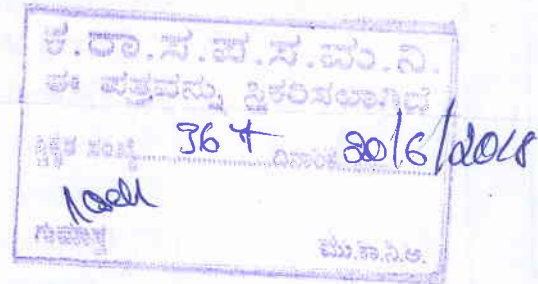 ಕ.ರಾ.ಸ.ಪ.ಸ.ಮ.ನಿ.
ಈ ಪತ್ರವನ್ನು ಸ್ವೀಕರಿಸಲಾಗಿದೆ
ಸ್ವೀಕೃತ ಸಂಖ್ಯೆ ದಿನಾಂಕ /6/2018
ಗುಮಾಸ್ತ ಮು.ಕಾ.ನಿ.ಅ.